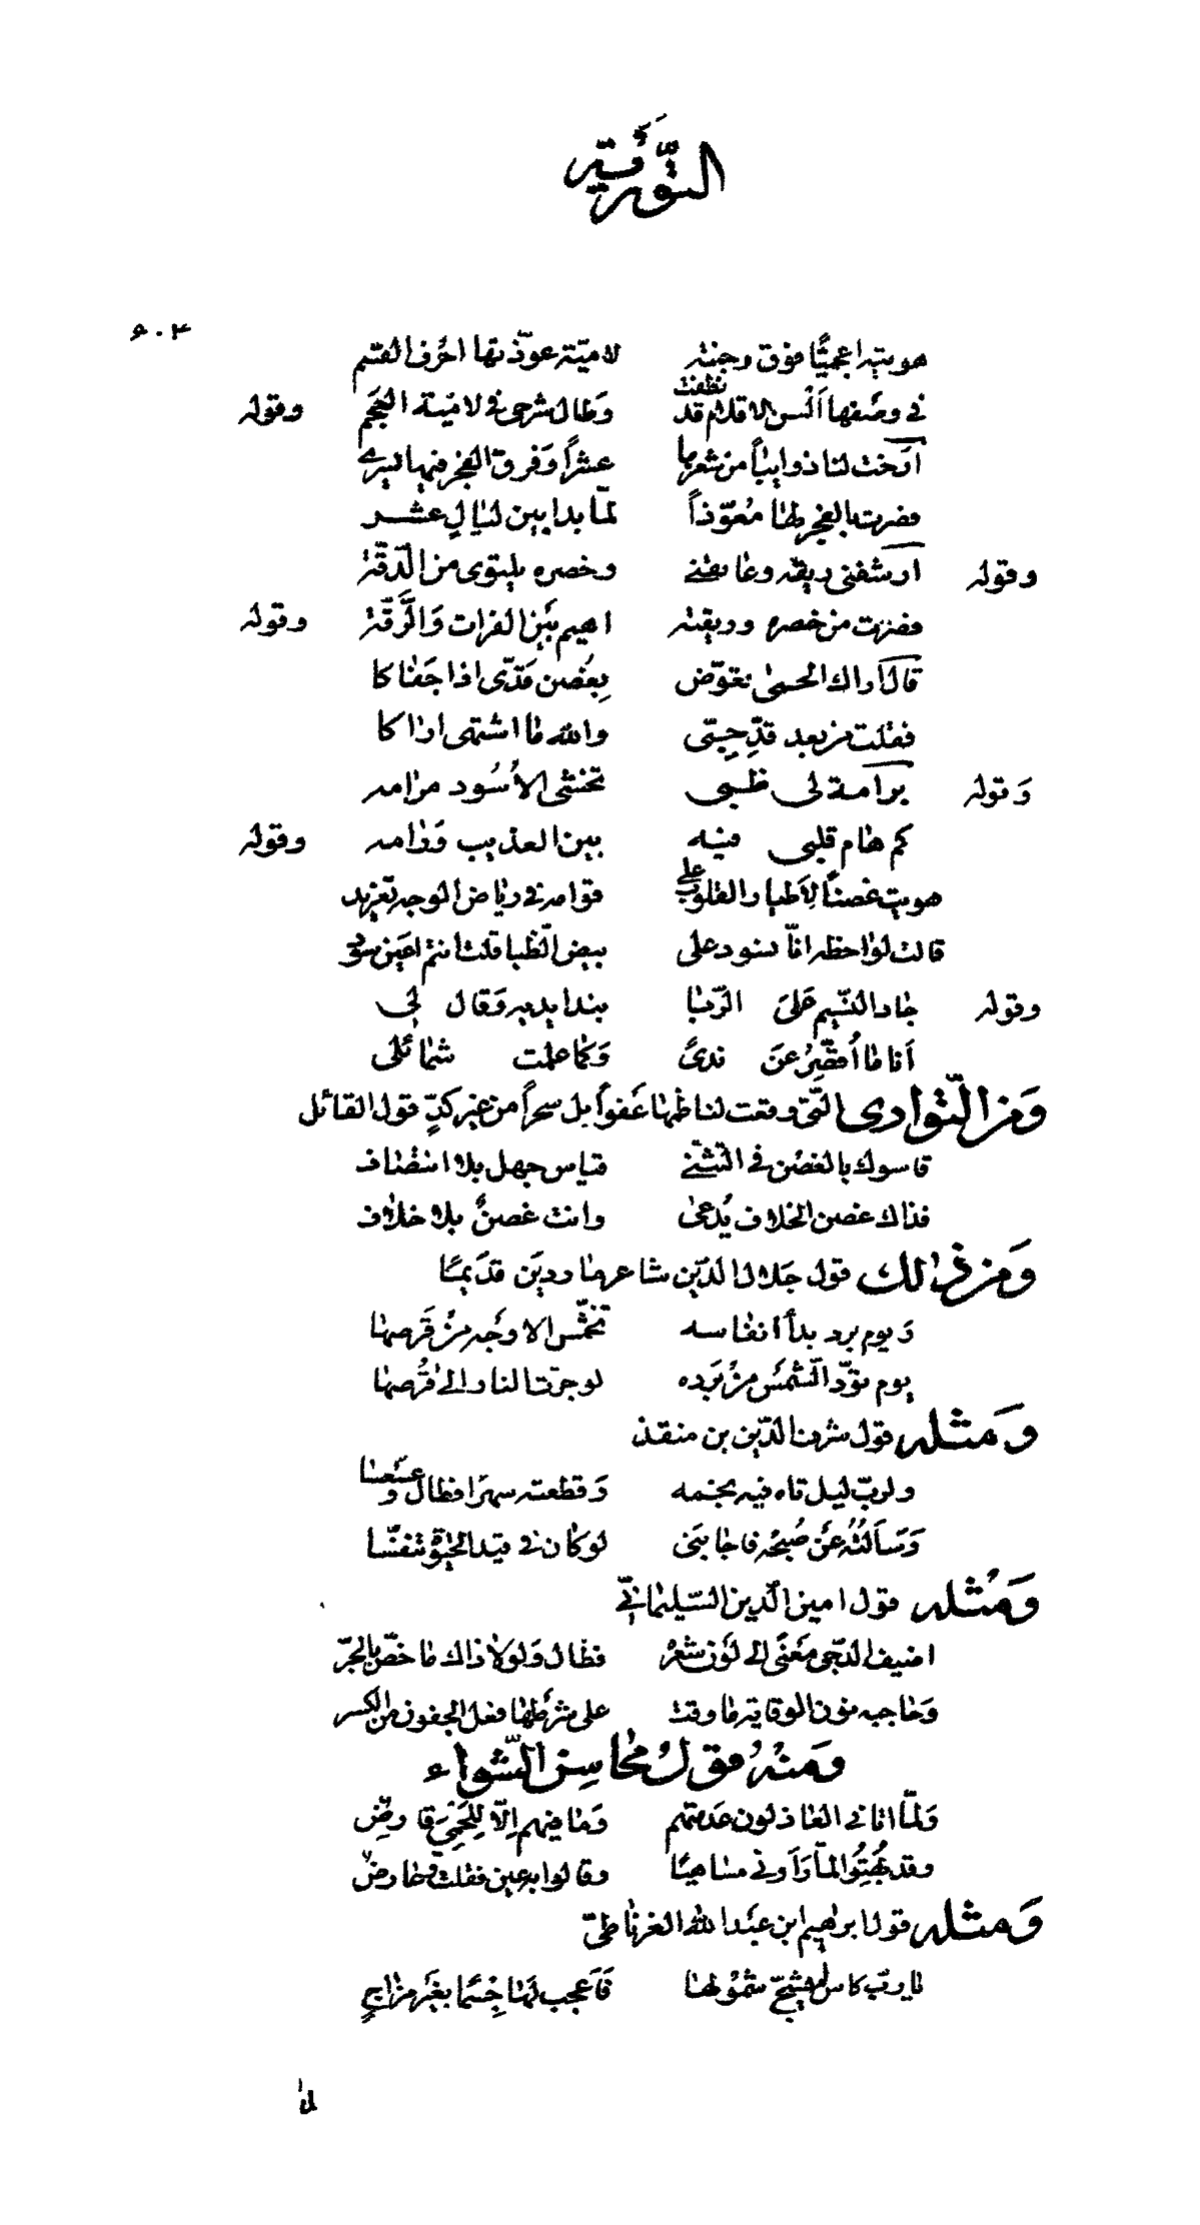 التورية
٦٠٢
هويته اعجميًّا فوق وجنته لاميّة عوّذتها احرُف القسم
في وصفها اَلْسن الاقلام قد نطقت وَطال شرحى في لاميّة العَجَم وقوله
اَرْخت لنا ذوايبًا من شعرها عشرًا وَفرق الفجر فيها يسري
فصرت بالفجر لها مُعوّذاً لمّا بدا بين ليَالٍ عشر
وقوله ارشفنى ريقه وعانقنى وخصره يلتوى من الدّقّة
فصرت من خصره وريقته اهيم بَيْن الفرات وَالرَّقّة وقوله
قال اَراك الحمىٰ تعوّض بِغُصن قدّى اذا جَفاكا
فقلت من بعد قدّ حِبّى والله ما اشتهى اراكا
وَقوله برامة لى ظبى تخشى الاُسُود مرامه
كم هام قلبى فيه بين العذيب وَرامه وقوله
هويت غصناً لاَطيار القلوب على قوامه في رياض الوجد تغريد
قالت لواحظه انّا نسود على بيض الظّبا قلت انتم اعين سود
وقوله جاد النّسيم عَلىَ الرّبا بندا يديه وَقال لي
اَنا ما اُقصّرُ عَن ندىً وَكما علمت شمائلى
وَمن النّوادر التّي وقعت لناظمها عَفواً بل سحراً من غير كدٍّ قول القائل
قاسوك بالغصْن في التّثنّي قياس جهل بلا انتصاف
فذاك غصن الخلاف يُدعىٰ وانت غصنٌ بلا خلاف
وَمن ذٰلك قول جَلال الدّين شاعر ماردين قدَيمًا
وَيوم برد بدأ انفاسه تخمّش الاوجُه منْ قَرصها
يوم تودّ الشّمسَ منْ بَرده لو جرّت النار الى قُرصها
وَمثله قول شرف الدّين بن منقذ
ولربّ ليل تاه فيه نجمه وَقطعته سهرًا فطال وعَسْعسا
وَسَاَلتُهُ عَنْ صُبْحه فاجابَنى لو كان في قيد الحَيٰوة تنفّسا
وَمثله قول امين الدّين السّليمانيّ
اضيف الدّجى مَعْنًى الى لَوْن شعْره فطال وَلولا ذاك ما خصّ بالجرّ
وَحاجبه نون الوقاية ما وقت على شرطها فعل الجفون من الكسر
وَمنهُ قولُ محاسِن الشّواء
وَلمّا اتاني العاذلون عَدمتهم وَما فيهم اِلّا لِلَحْمِيَ قارِضُ
وقد بُهِتُوا لمّا رَاَوْني شاحبًا وقالوا به عين فقلت وَعارضُ
وَمثله قول ابراهيم ابن عَبْد الله الغرناطىّ
يا ربّ كاس لم يشجّ شمُوْلها فَاَعجب لهَا جِسْمًا بغَيْر مزاجٍ
لما